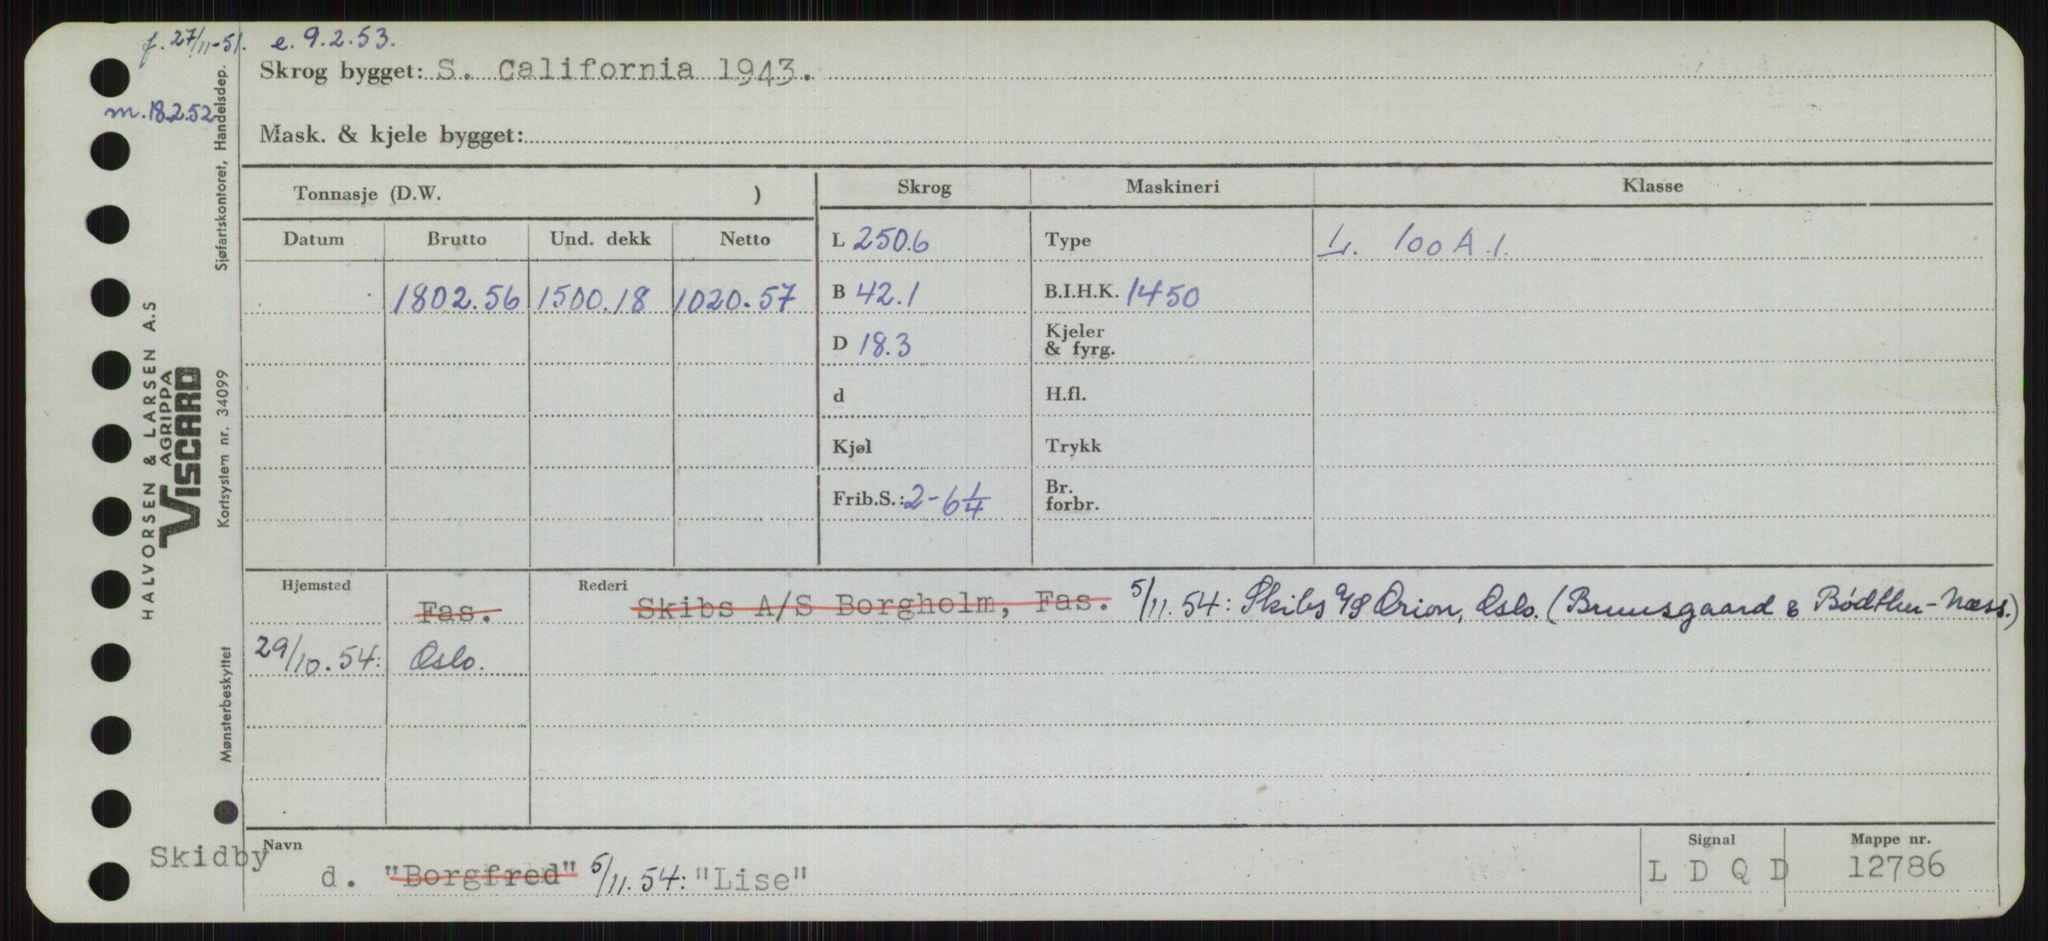 f. 27/11-51. e. 9.2.53.
Skrog bygget: S. California 1943.
m. 18.2.52
Mask. & kjele bygget:
Tonnasje (D.W. )
Skrog Maskineri Klasse
Datum Brutto Und. dekk Netto
L 250.6 Type L. 100 A.1.
1802.56 1500.18 1020.57
B 42.1 B.I.H.K. 1450
D 18.3 Kjeler
& fyrg.
d H.fl.
Kjøl Trykk
Frib.S.: 2-6 1/4 Br.
forbr.
Hjemsted Rederi
Fas. Skibs A/S Borgholm, Fas. 5/11.54: Skibs A/S Orion, Oslo. (Bruusgaard & Bødtker-Næss.)
29/10.54: Oslo.
Navn Signal Mappe nr.
Skidby
d. "Borgfred" 5/11.54: "Lise" L D Q D 12786
HALVORSEN & LARSEN A.S
AGRIPPA
VISCARD
Sjøfartskontoret, Handelsdep.
Kortsystem nr. 34099
Mønsterbeskyttet